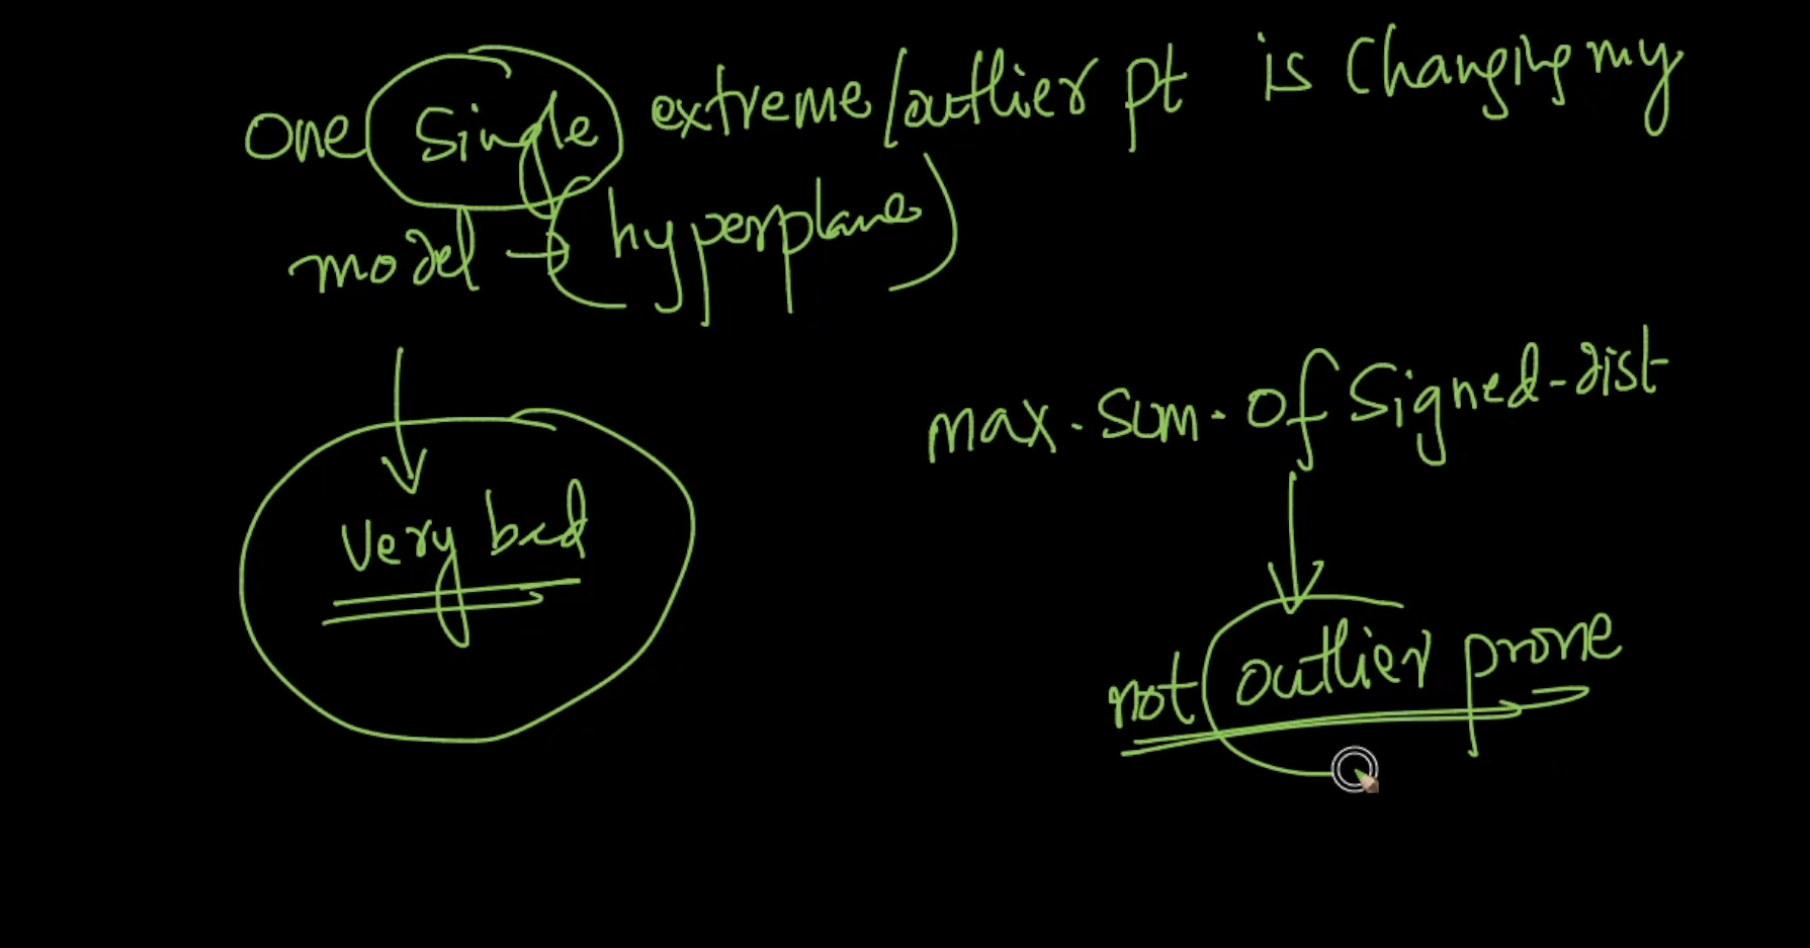 one single extreme/outlier pt is changing my
model → (hyperplane)
very bad
max. sum. of signed-dist
not outlier prone